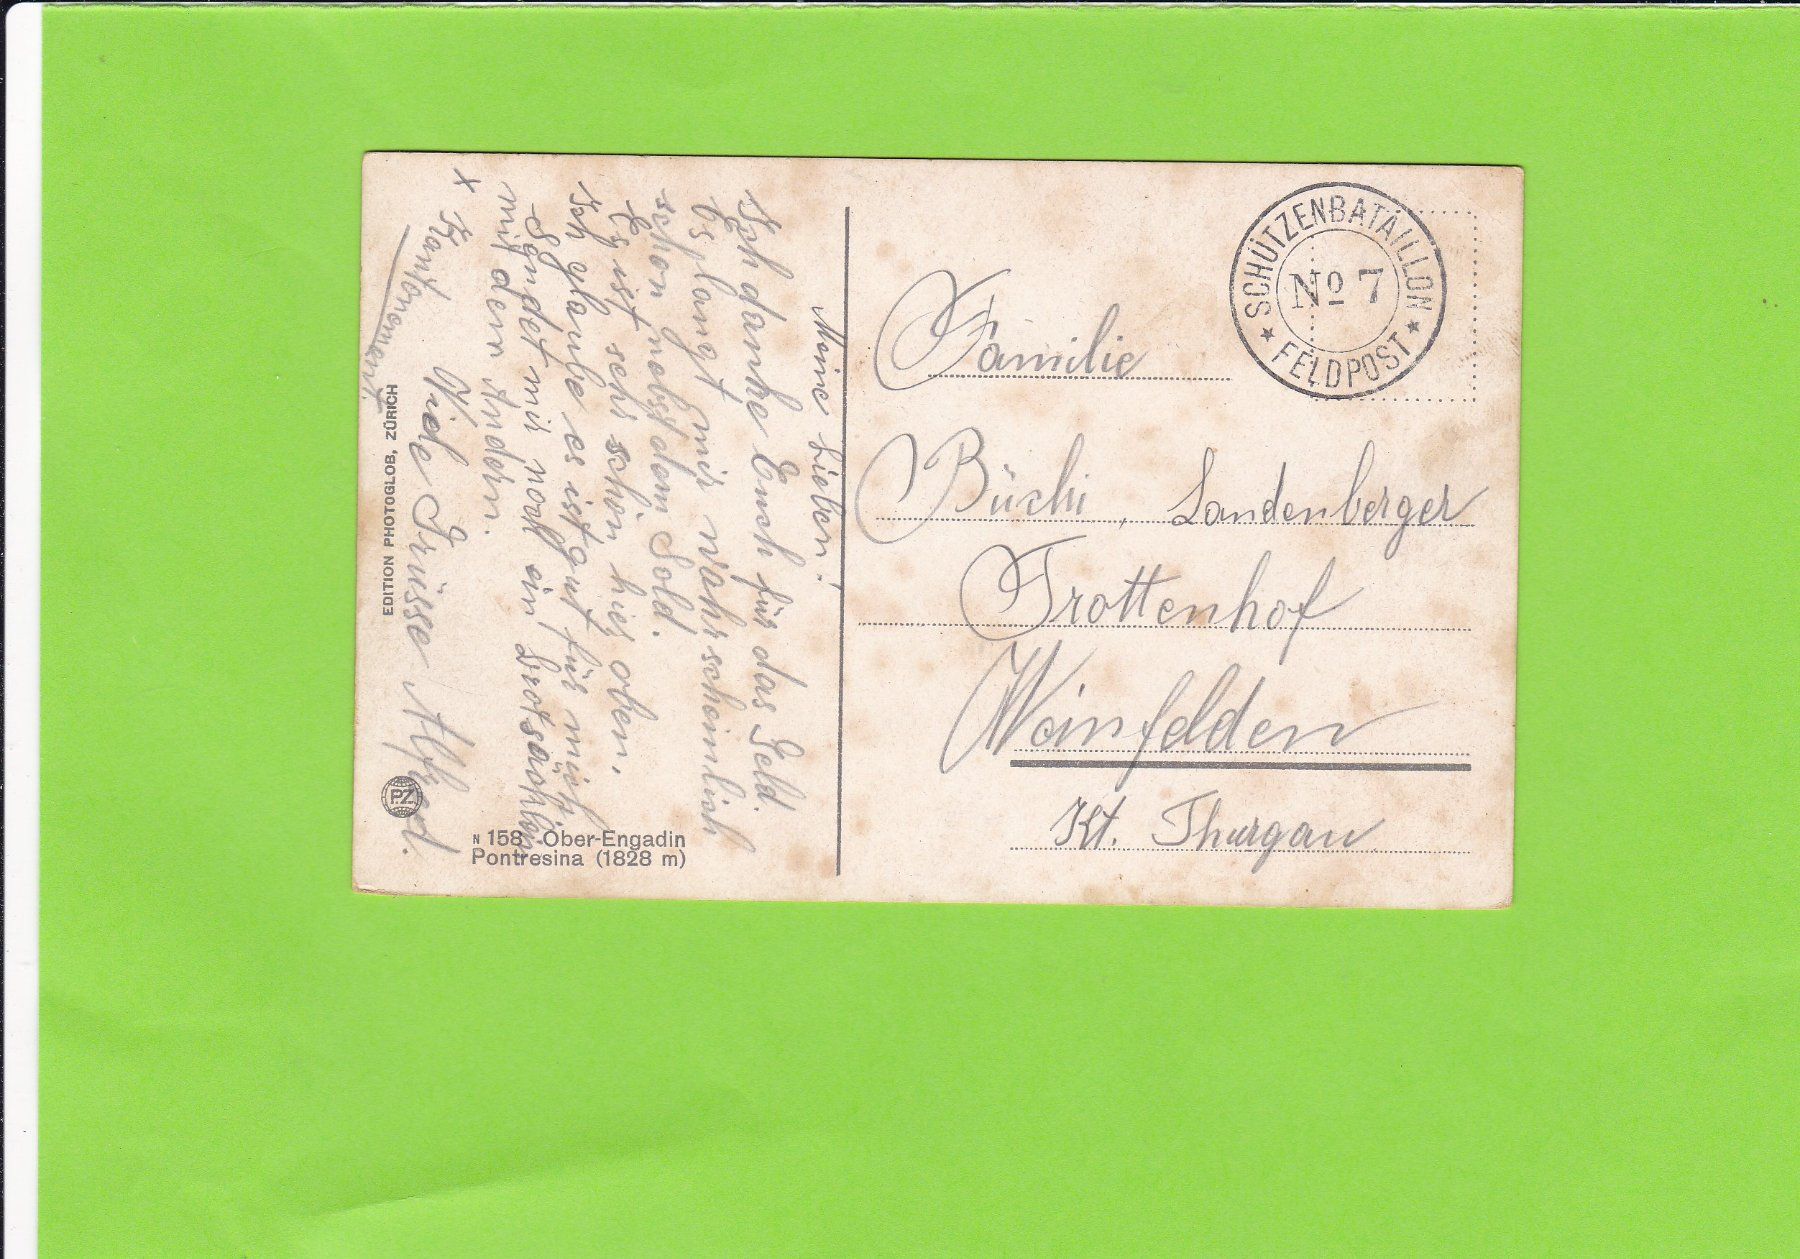 Meine Lieben!
Ich danke Euch für das Geld.
Es langt mir wahrscheinlich
schon nebst dem Sold.
Es ist sehr schön hier oben.
Ich glaube es ist gut für mich.
Sendet mir noch ein
mit dem Andern.
x Kantonement.
Viele Grüsse Alfred.
EDITION PHOTOGLOB, ZÜRICH
P.Z.
N 158 Ober-Engadin
Pontresina (1828 m)
★ SCHÜTZENBATAILLON ★
No 7
FELDPOST
Familie
Büchi, Landenberger
Trottenhof
Weinfelden
Kt. Thurgau